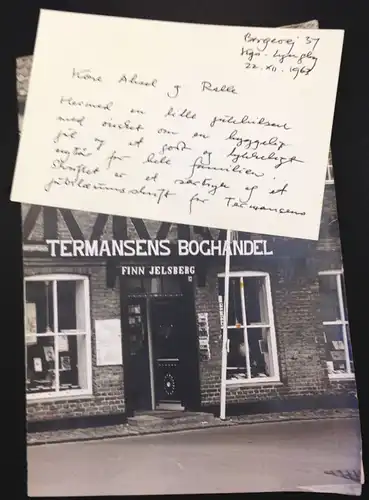 Bergevej 37
Kgs. Lyngby
22. XII. 1968
Kære Aksel og Kalle
Hermed en lille julehilsen
med ønsket om en hyggelig
jul og et godt og lykkeligt
nytår for hele familien.
Skriftet er et særtryk og et
jubilæumsskrift for Termansens
TERMANSENS BOGHANDEL
FINN JELSBERG